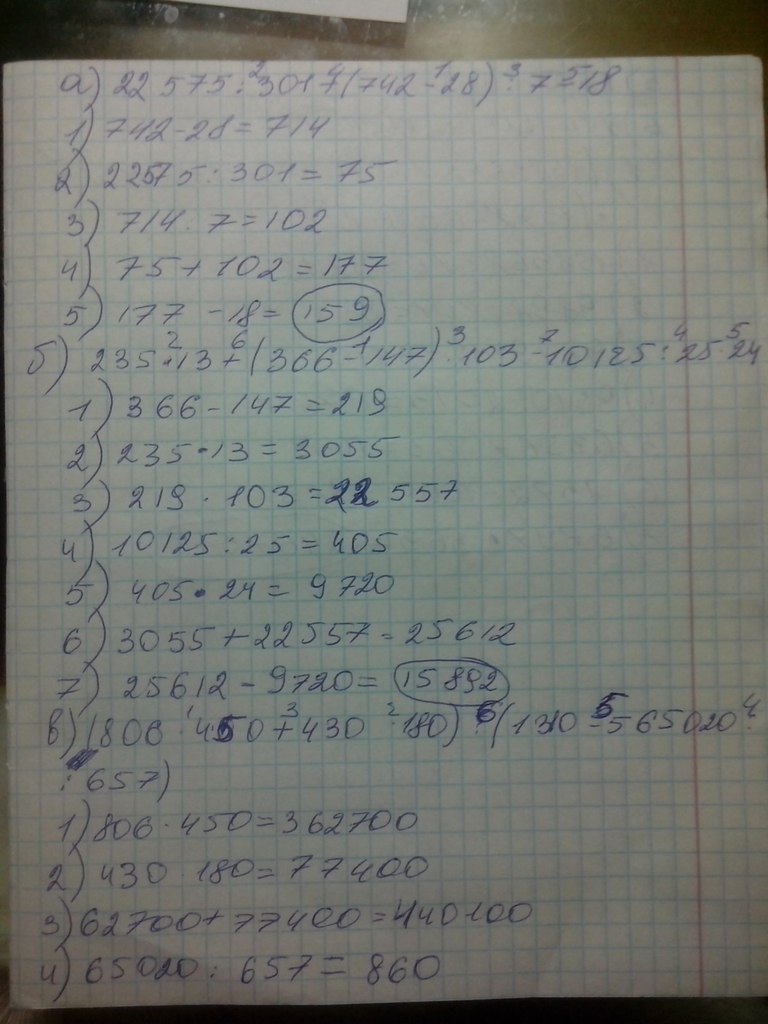 а) 22 575 : 301 + (742 - 28) : 7 - 18
1) 742 - 28 = 714
2) 22575 : 301 = 75
3) 714 : 7 = 102
4) 75 + 102 = 177
5) 177 - 18 = 159
б) 235 · 13 + (366 - 147) · 103 - 10125 : 25 · 24
1) 366 - 147 = 219
2) 235 · 13 = 3055
3) 219 · 103 = 22 557
4) 10125 : 25 = 405
5) 405 · 24 = 9720
6) 3055 + 22557 = 25612
7) 25612 - 9720 = 15892
в) (806 · 450 + 430 · 180) : (1310 - 565020 :
: 657)
1) 806 · 450 = 362700
2) 430 · 180 = 77400
3) 62700 + 77400 = 440100
4) 65020 : 657 = 860